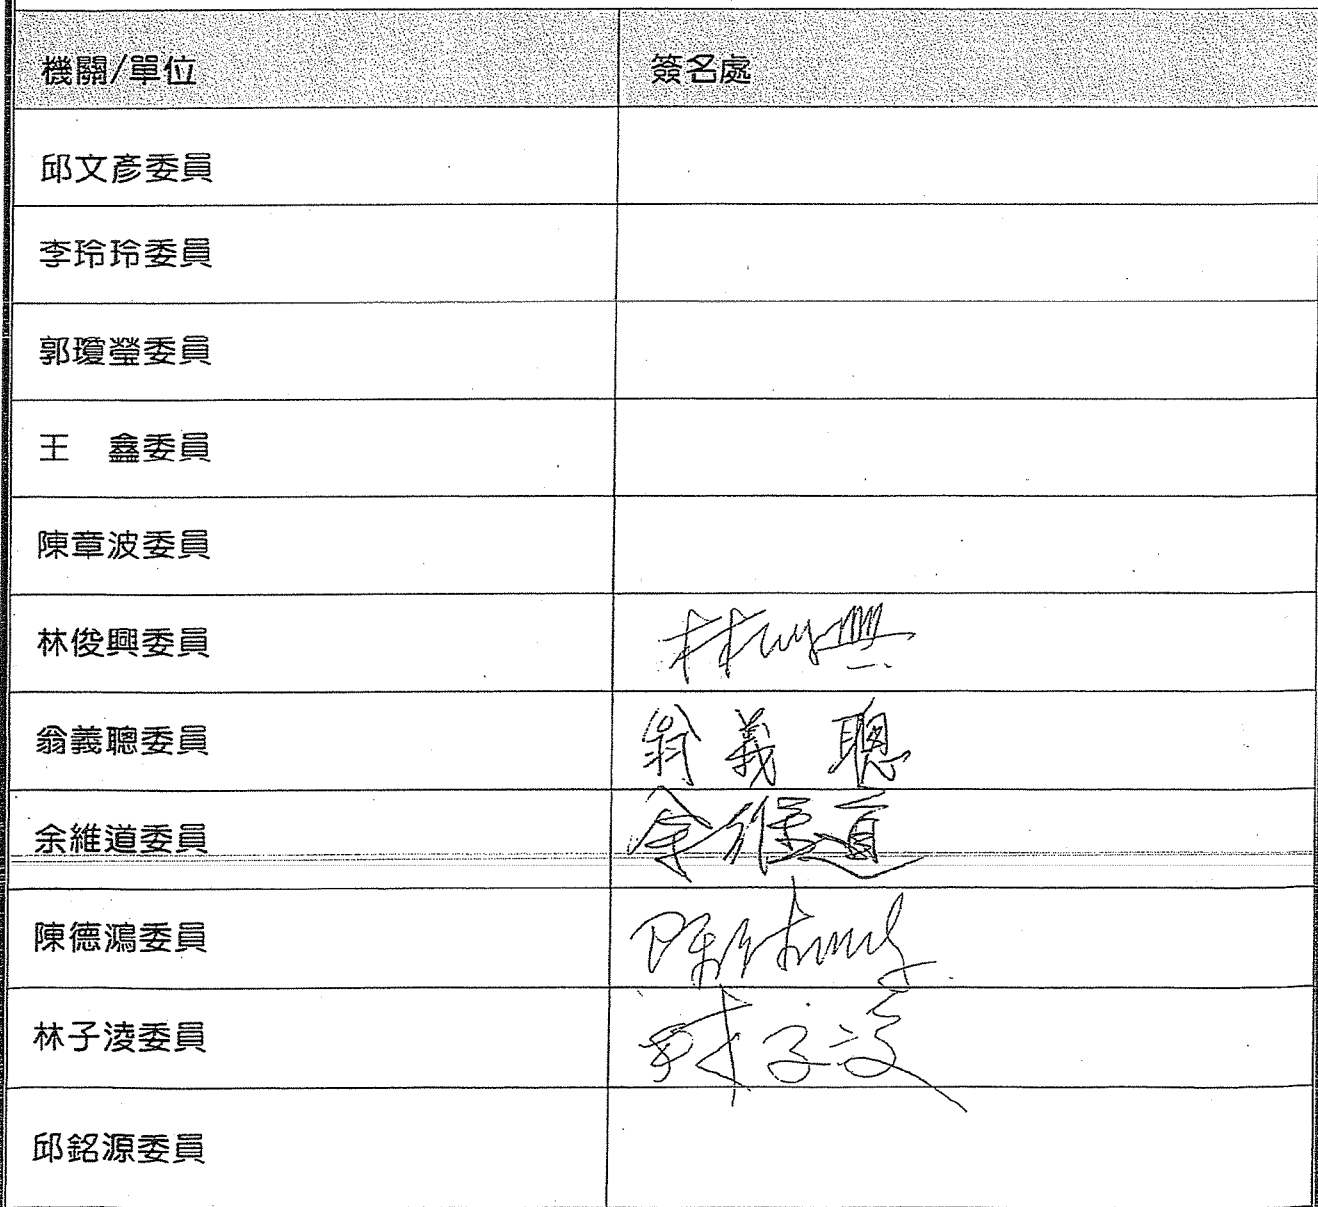 機關/單位 簽名處
邱文彥委員
李玲玲委員
郭瓊瑩委員
王 鑫委員
陳章波委員
林俊興委員 林俊興
翁義聰委員 翁義聰
余維道委員 余維道
陳德鴻委員 陳德鴻
林子淩委員 林子淩
邱銘源委員